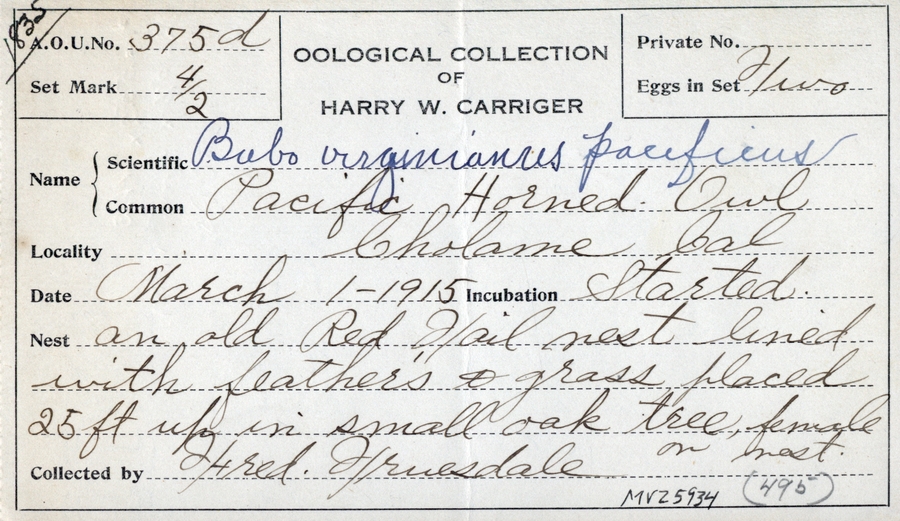 1835
A.O.U.No. 375d
Set Mark 4/2
OOLOGICAL COLLECTION
OF
HARRY W. CARRIGER
Private No.
Eggs in Set Two
Name { Scientific Bubo virginianus pacificus
Common Pacific Horned Owl
Locality Cholame, Cal
Date March 1-1915 Incubation Started.
Nest an old Red Tail nest lined
with feathers & grass, placed
25 ft up in small oak tree, female
on nest.
Collected by Fred. Truesdale
MVZ5934 495